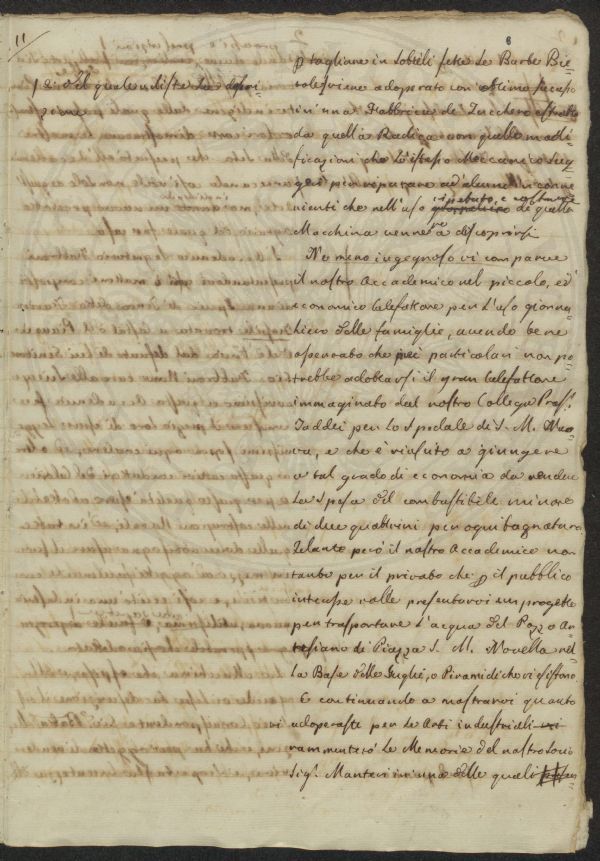 11
8
p tagliare in sottili fette le Barbe Bie-
tole
adoperato con ottimo successo
in una Fabbrica di Zucchero estratto
da quella Radica con quelle modi-
ficazioni che l'istesso Meccanico Sug-
gerì per riparare ad alcuni inconve-
ripetuto, e costante
nienti che nell'uso di quella
Macchina vennero a discoprirsi
No meno ingegnoso vi comparve
il nostro Accademico nel piccolo, ed
economico Calefattore per l'uso giorna-
liero delle famiglie, avendo bene
osservato che pei particolari non po-
trebbe adottarsi il gran Calefattore
immaginato dal nostro Collega Profs.
Taddei per lo Spedale di S. M. Nuo-
va, e che è riuscito a giungere
a tal grado di economia da rendere
la spesa del combustibile minore
di due quattrini per ogni bagnatura
Zelante però il nostro Accademico non
tanto per il privato che p il pubblico
interesse volle presentarvi un progetto
per trasportare l'acqua del Pozzo Ar-
tesiano di Piazza S. M. Novella nel-
la Base delle Guglie, o Piramidi che vi esistono.
E continuando a mostrarvi quanto
vi adoperaste per le Arti industriali vi
rammenterò le Memorie del nostro Socio
Sigr. Manteri in una delle quali
12. Il quale